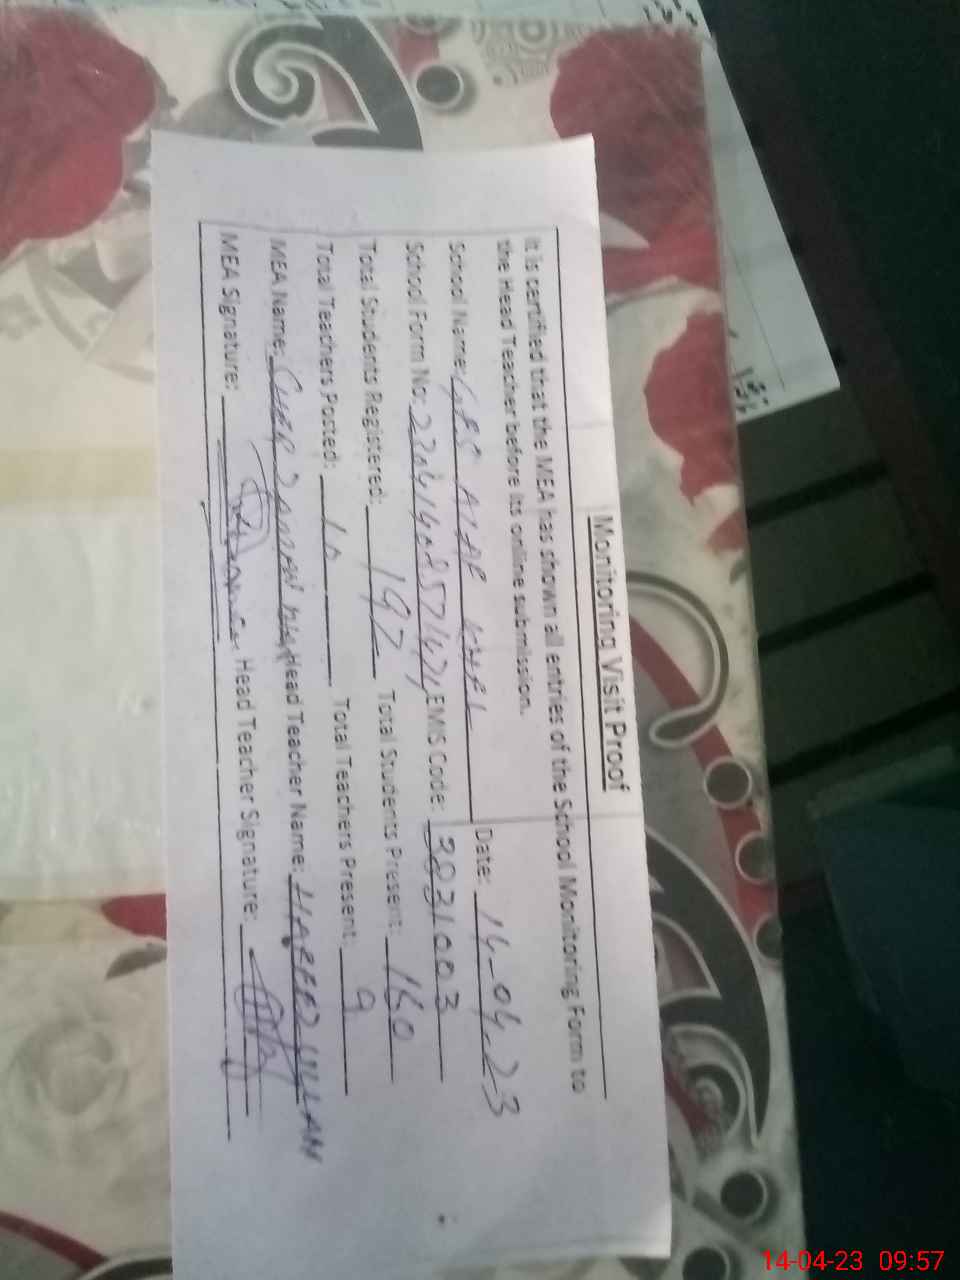 Monitoring Visit Proof
It is certified that the MEA has shown all entries of the School Monitoring Form to
the Head Teacher before its online submission.
School Name: KHEL Date: 14-04-23
School Form No: EMIS Code: 3831003
Total Students Registered: 197 Total Students Present: 160
Total Teachers Posted: 10 Total Teachers Present: 9
MEA Name: Head Teacher Name: HAFEEZ ULLAH
MEA Signature: Head Teacher Signature:
14-04-23 09:57